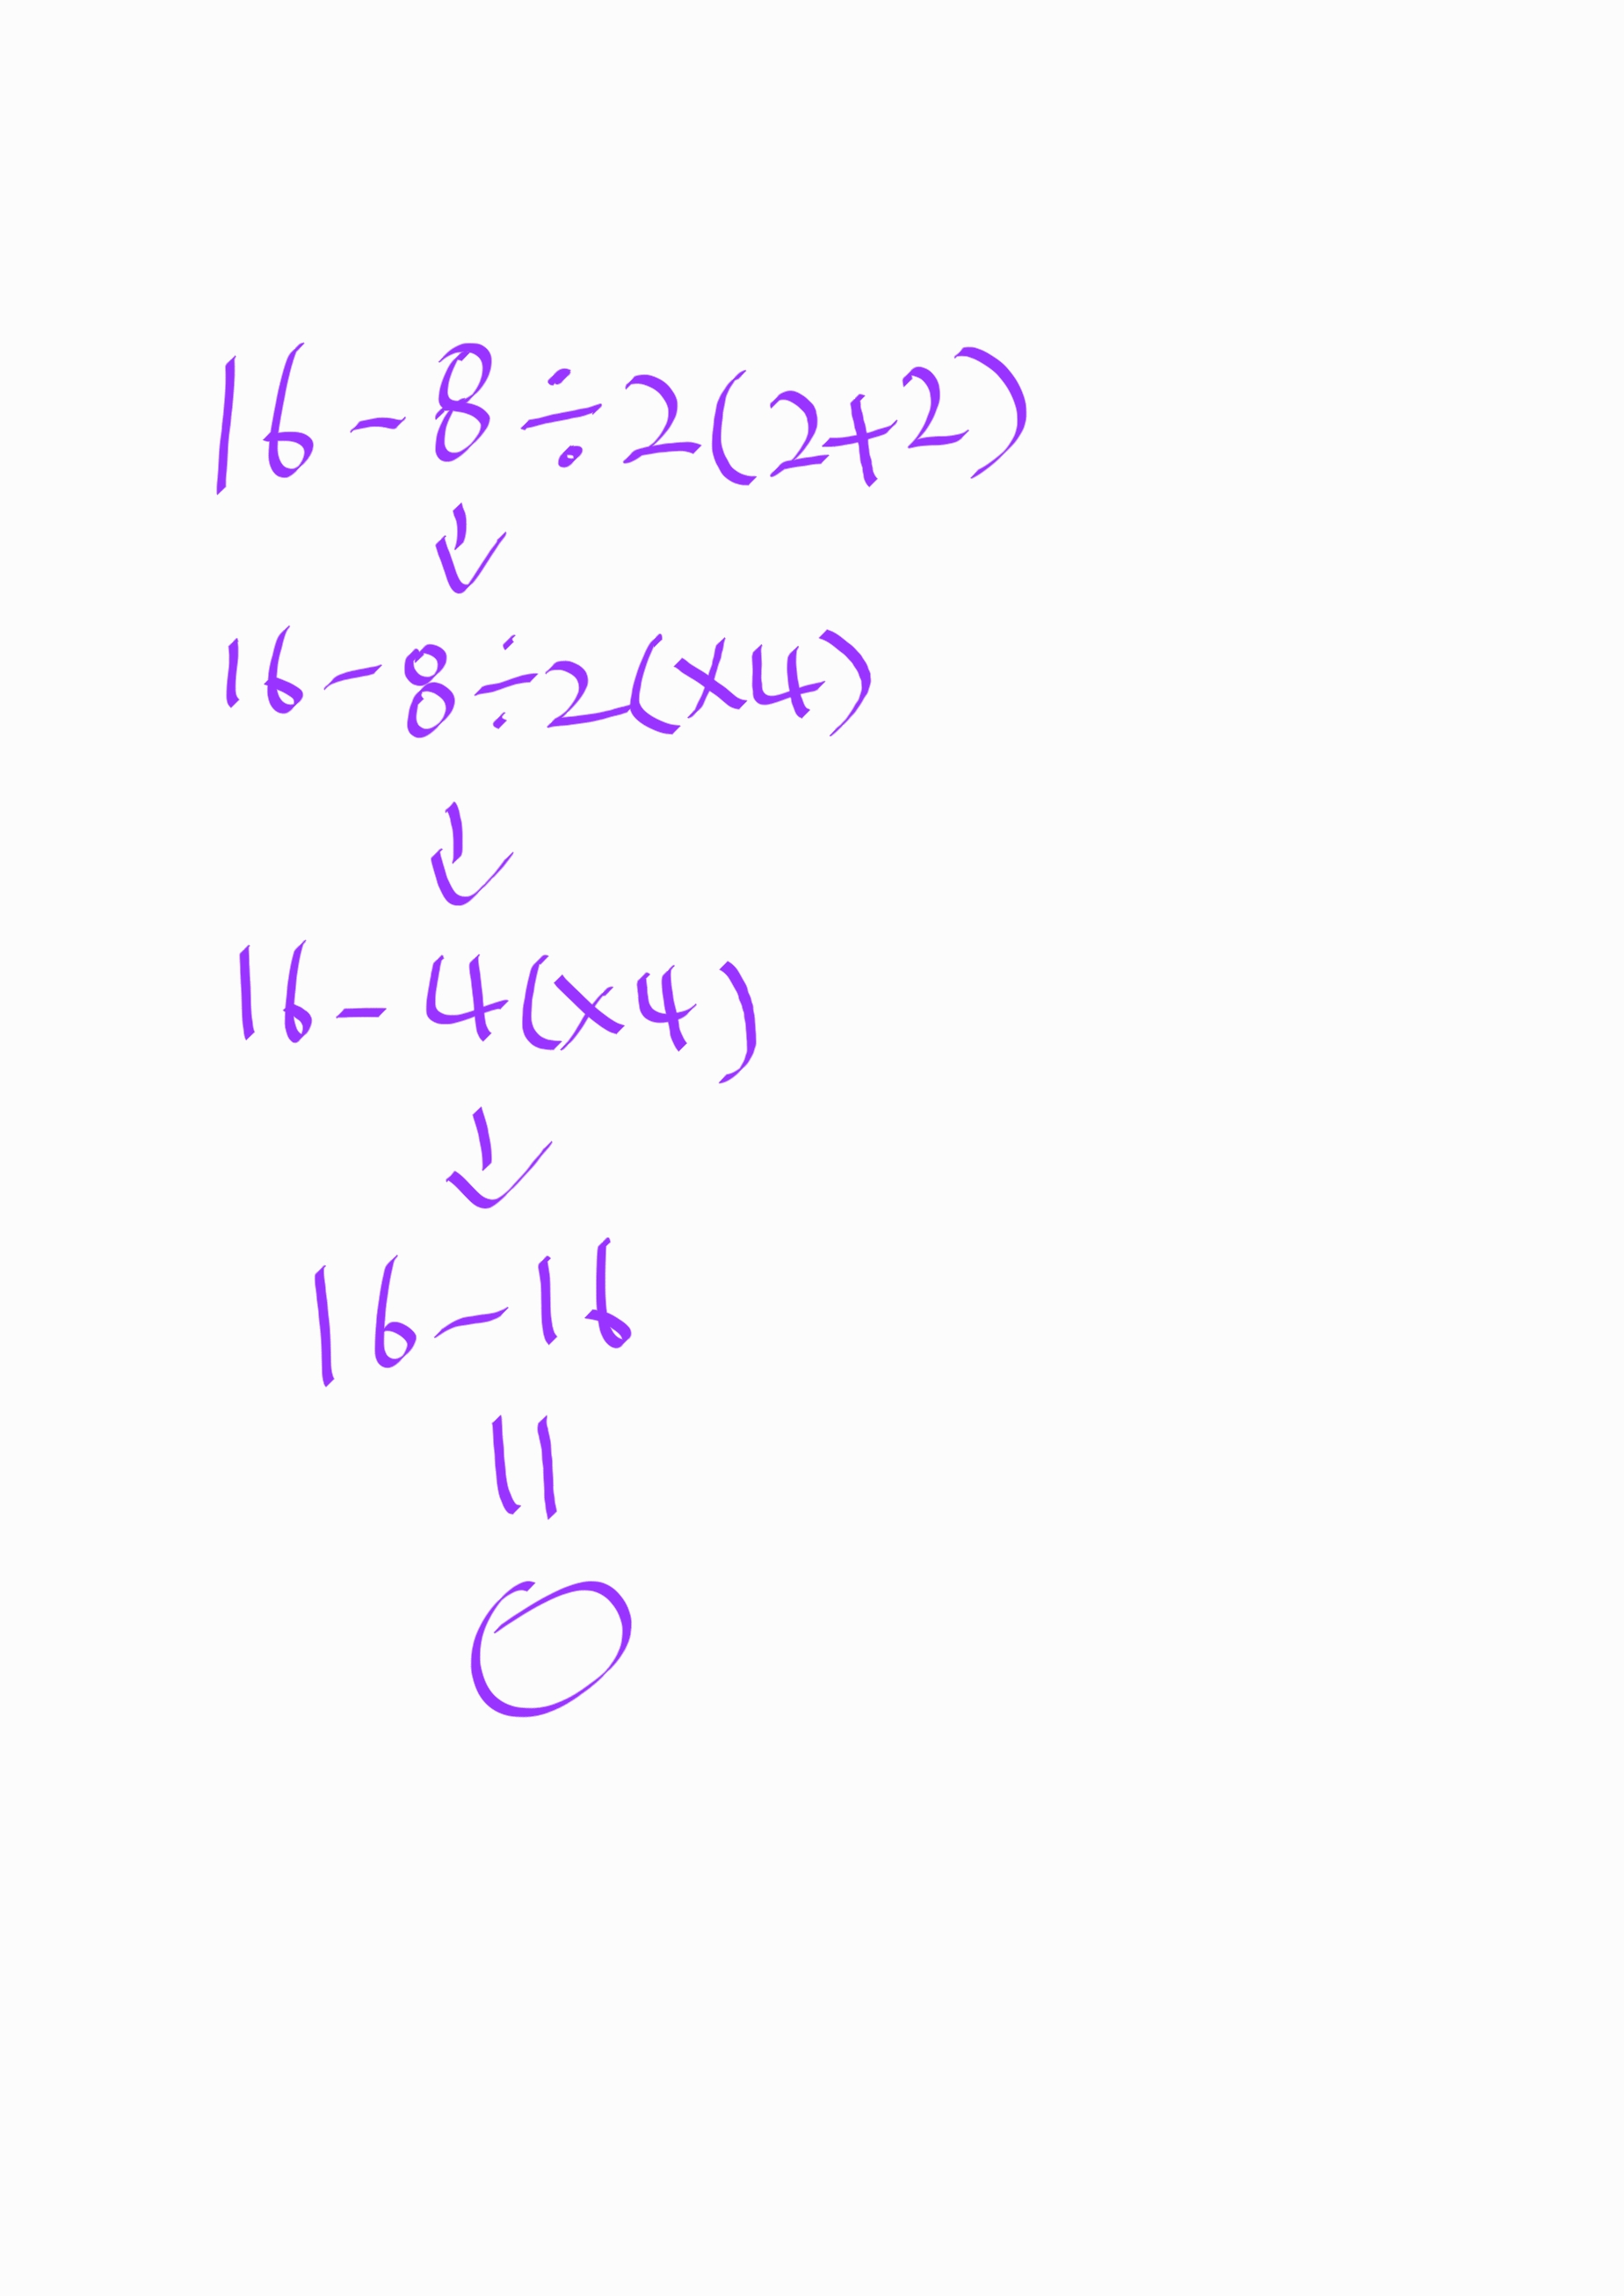 16-8÷2(2+2)
↓
16-8÷2(×4)
↓
16-4(×4)
↓
16-16
11
0